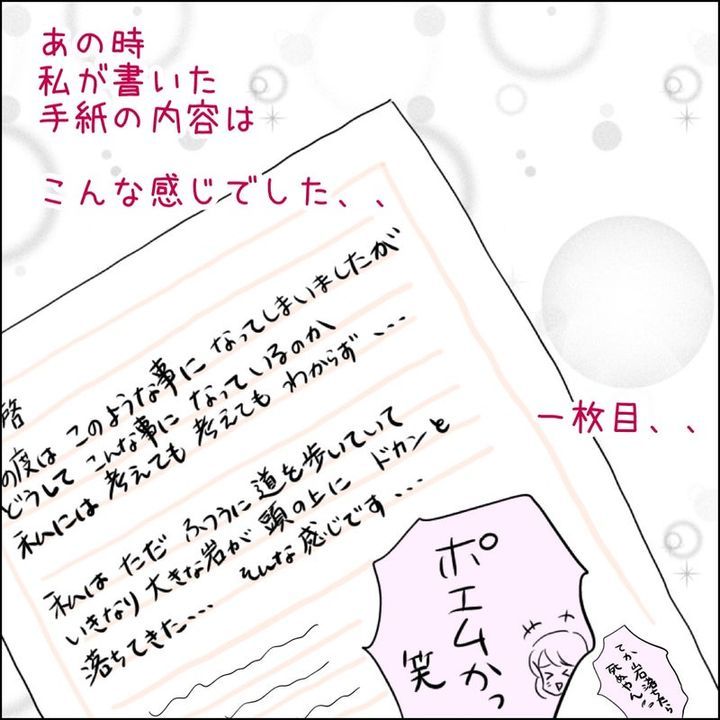 あの時
私が書いた
手紙の内容は
こんな感じでした、、
啓
の度は このような事に なってしまいましたが
どうして こんな事に なっているのか
私には 考えても 考えても わからず、、、
私は ただ ふつうに 道を歩いていて
いきなり 大きな岩が 頭の上に ドカンと
落ちてきた、、、 そんな 感じです、、、
一枚目、、
ポエムかっ
笑
てか岩落ちたら
死ぬやん!!